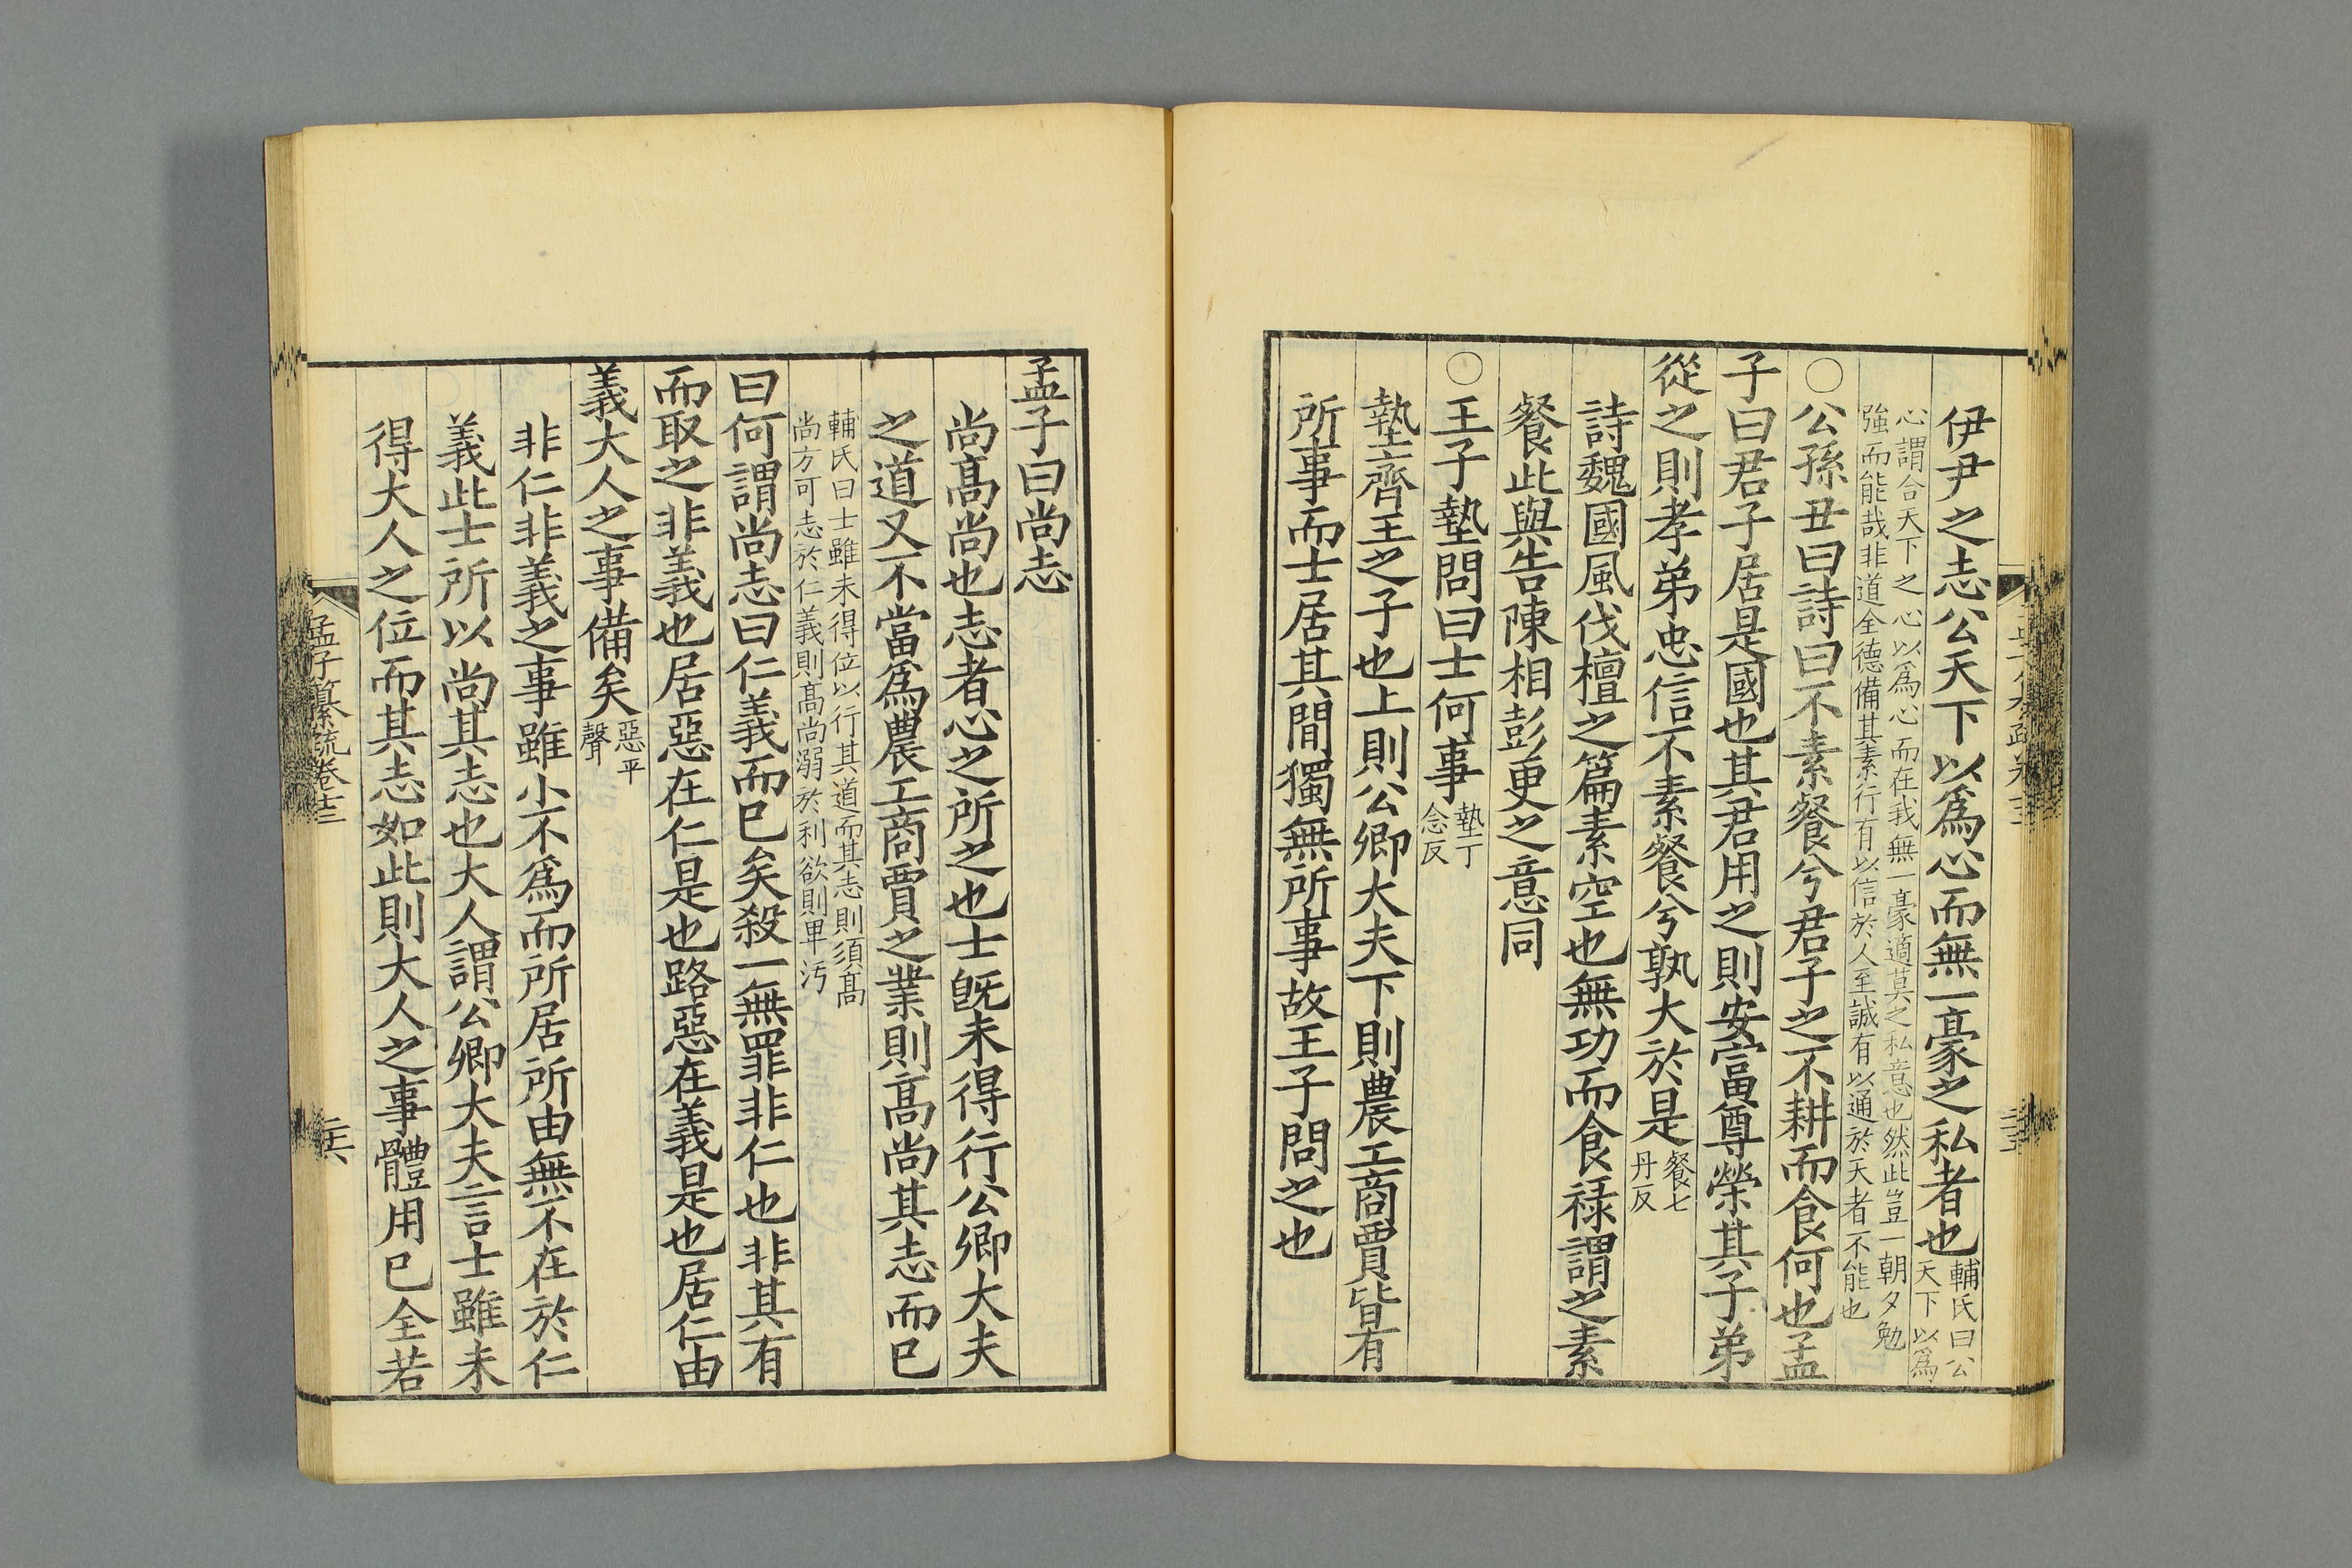 伊尹之志公天下以爲心而無一豪之私者也輔氏曰公天下以爲
心謂合天下之心以爲心而在我無一豪適莫之私意也然此豈一朝夕勉
強而能哉非道全德備其素行有以信於人至誠有以通於天者不能也
○公孫丑曰詩曰不素餐兮君子之不耕而食何也孟
子曰君子居是國也其君用之則安富尊榮其子弟
從之則孝弟忠信不素餐兮孰大於是餐七丹反
詩魏國風伐檀之篇素空也無功而食禄謂之素
餐此與告陳相彭更之意同
○王子墊問曰士何事墊丁念反
墊齊王之子也上則公卿大夫下則農工商賈皆有
所事而士居其間獨無所事故王子問之也
孟子曰尚志
尚髙尚也志者心之所之也士旣未得行公卿大夫
之道又不當爲農工商賈之業則髙尚其志而已
輔氏曰士雖未得位以行其道而其志則須髙
尚方可志於仁義則髙尚溺於利欲則卑汚
曰何謂尚志曰仁義而已矣殺一無罪非仁也非其有
而取之非義也居惡在仁是也路惡在義是也居仁由
義大人之事備矣惡平聲
非仁非義之事雖小不爲而所居所由無不在於仁
義此士所以尚其志也大人謂公卿大夫言士雖未
得大人之位而其志如此則大人之事體用已全若
孟子纂疏卷十三
二十六